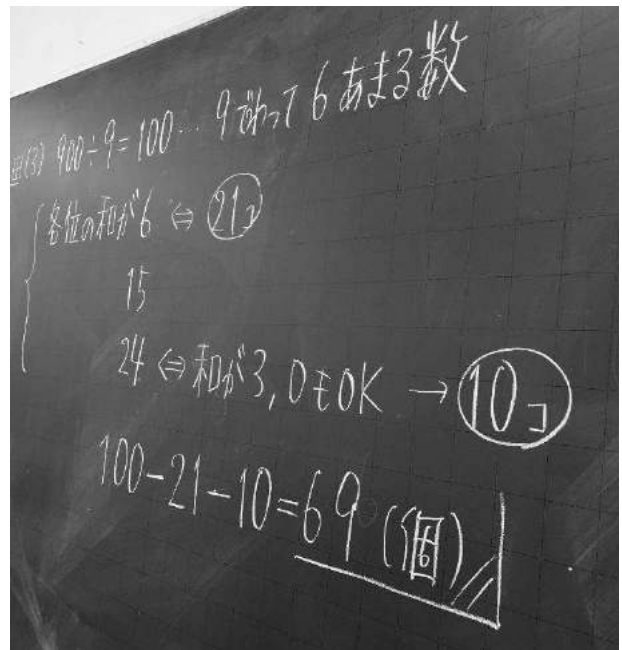 (3) 900÷9=100… 9でわって6あまる数
各位の和が6 ⇔ 21コ
15
24 ⇔ 和が3,0もOK → 10コ
100-21-10=69(個)